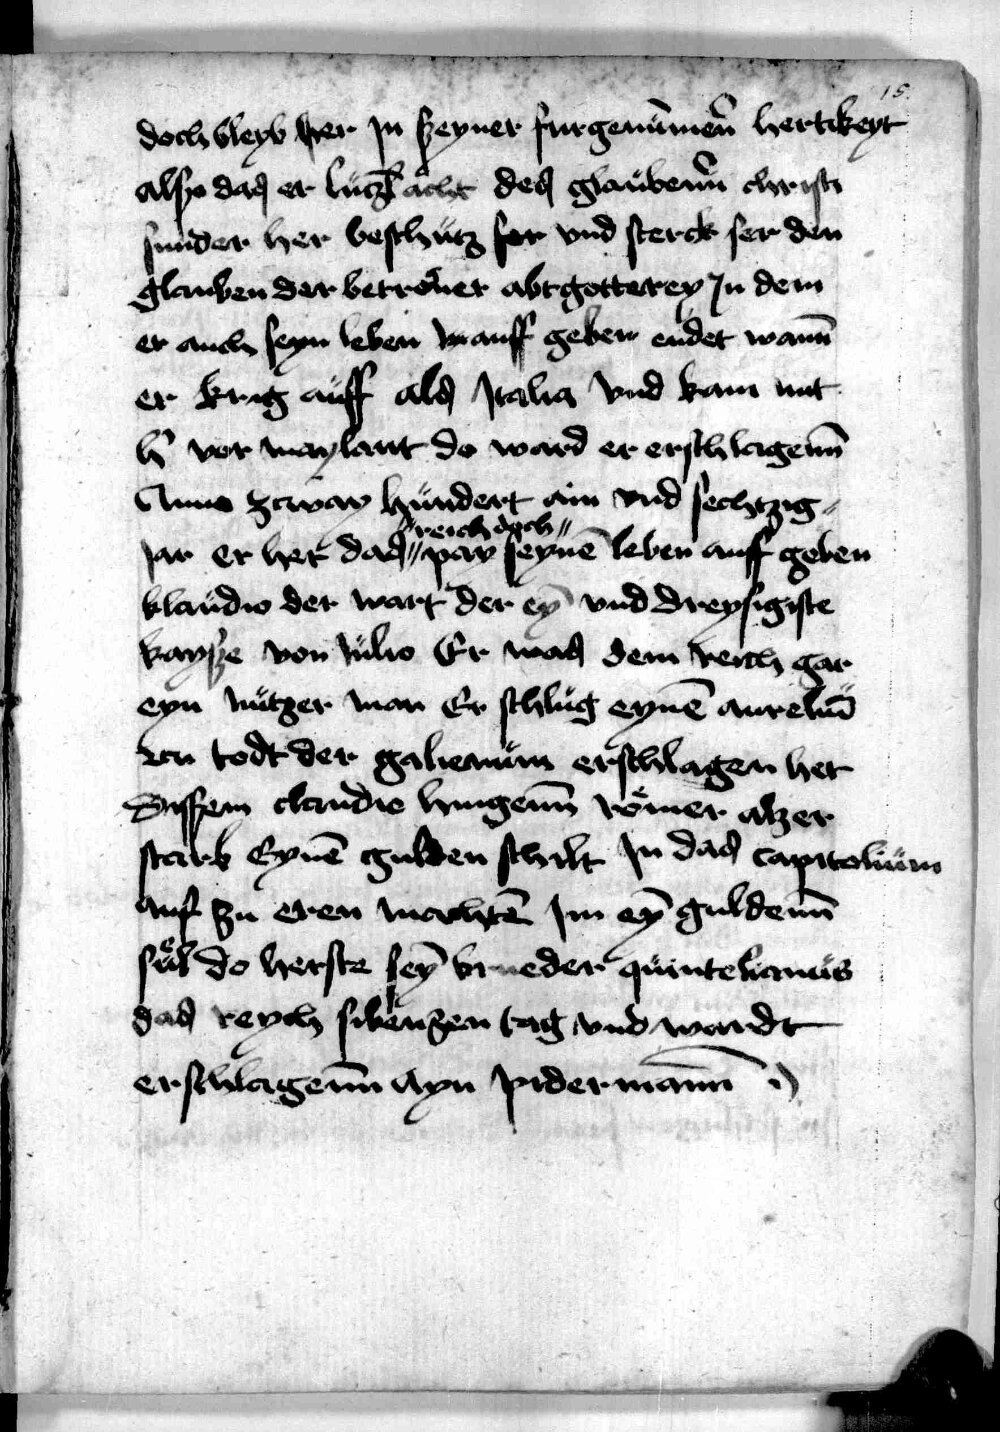 15
doch bleyb her Jn ſzeyner furgenūmen̄ hertikeyt
alſzo das er lutzl acht des glaubenn̄ chriſti
ſunder her beſchutz ſer vnd ſterck ſer den
glauben der betroͤuer abtgotterey Jn dem
er auch ſeyn leben auff geben endet wann̄
er krig auff als Jtalia vnd kam mit
vor maylant do ward er erſchlagenn̄
Anno zcway hundert ain vnd ſechtzig
reich doch
Jar er het das pay ſeynē leben auff geben
klaudio der wart der eȳ vnd dreyſigiſte
kayſze von Julio Er was dem reich gar
eyn nutzer man Er ſchlug eynē aureliū
zcu todt der galienum erſchlagen het
Diſſem claudio hingenn̄ roͤmer alzer
ſtarb Eynē gulden ſchilt Jn das capitolium
auf zu eren machtē Jm eȳ guldenn̄
ſuͤl do herſte ſeȳ brueder quintelianus
das reych ſibenzen tag vnd wardt
erſchlagenn̄ Ayn piderman̄